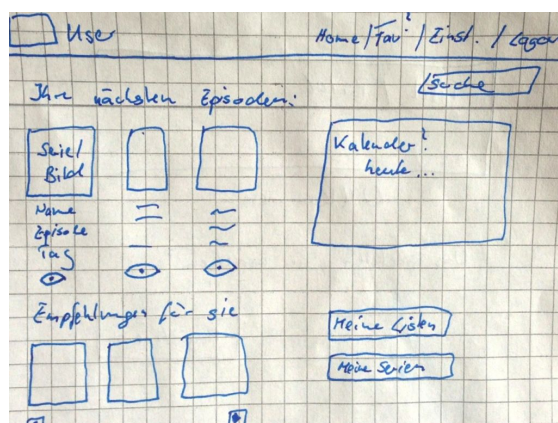 User
Home / Fav? / Einst. / Logout
Suche
Ihre nächsten Episoden:
Serie/
Bild
Name
Episode
Tag
Kalender?
heute...
Empfehlungen für sie
Meine Listen
Meine Serien